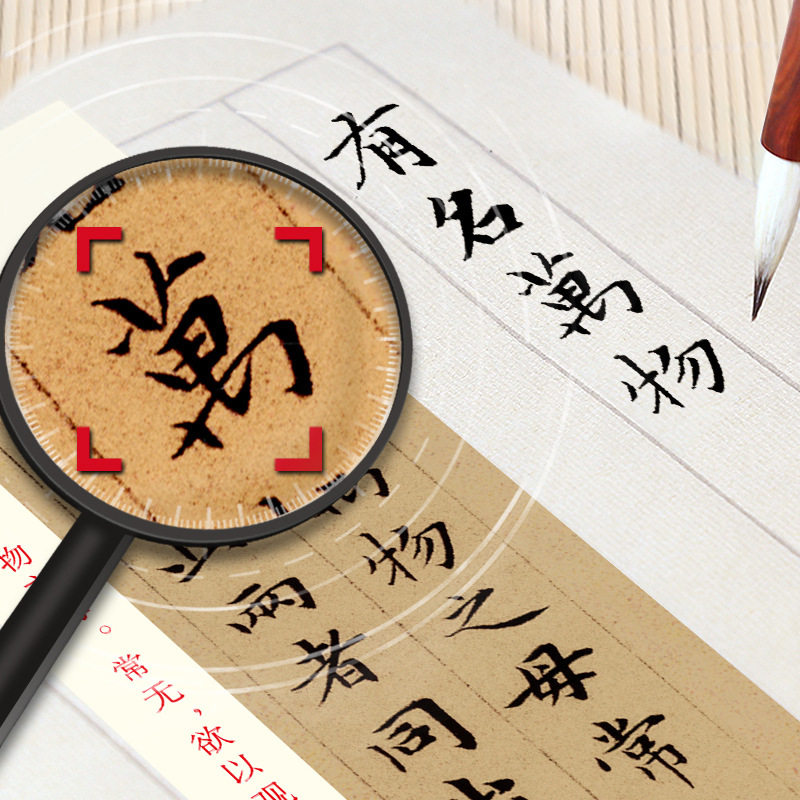 有名萬物
萬
萬物之母常
此兩者同
物
。常无，欲以观